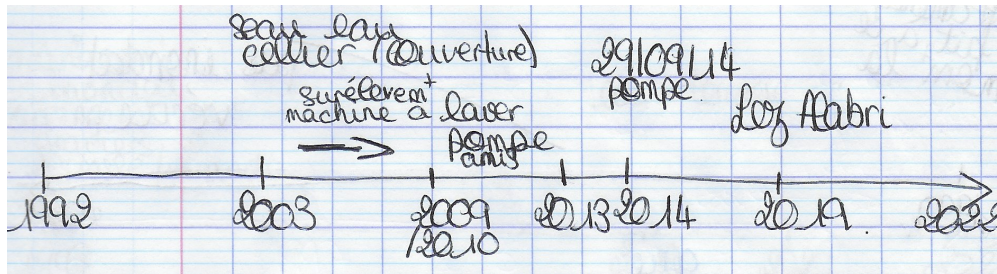 seau eau
cellier (couverture)
surélevem^t
machine à laver
pompe
amis
29/09/14
pompe
Alabri
1992
2003
2009
/2010
2013
2014
2019
2022